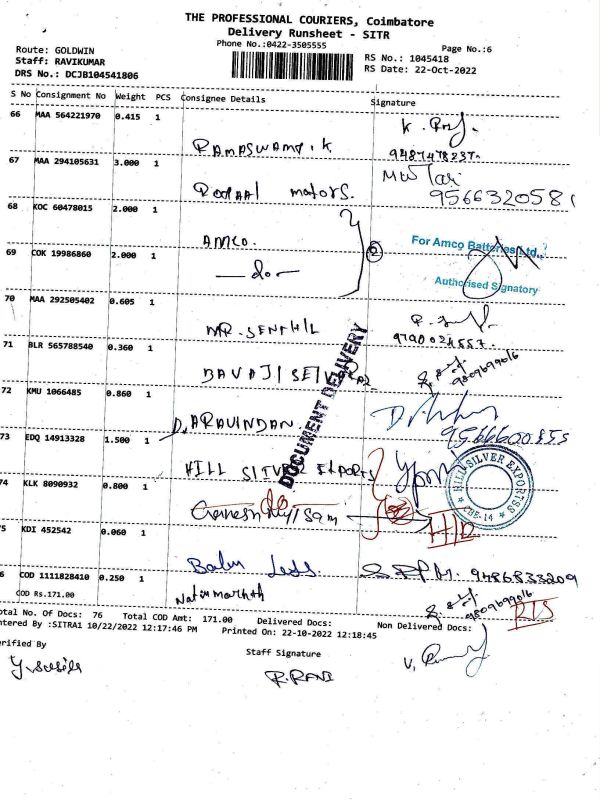 THE PROFESSIONAL COURIERS, Coimbatore
Delivery Runsheet - SITR
Phone No.:0422-3505555
Page No.:6
Route: GOLDWIN
Staff: RAVIKUMAR
DRS No.: DCJB104541806
RS No.: 1045418
RS Date: 22-Oct-2022
S No Consignment No Weight PCS Consignee Details Signature
66 MAA 564221970 0.415 1
RAMASWAMI. K
9487478237.
67 MAA 294105631 3.000 1
motors.
9566320581
68 KOC 60478015 2.000 1
AMCO.
For Amco Batteries Ltd.,
69 COK 19986860 2.000 1
- do -
2
Authorised Signatory
70 MAA 292505402 0.605 1
MR. SENTHIL
9790024557.
71 BLR 565788540 0.360 1
BAVAJI
9809699016
DOCUMENT DELIVERY
72 KMU 1066485 0.860 1
D. ARAVINDAN.
9566600855
73 EDQ 14913328 1.500 1
HILL SILVER EXPORTS
HILL SILVER EXPORTSS
CBE-14
74 KLK 8090932 0.800 1
do
Ganesh
H/D
75 KDI 452542 0.060 1
Babu
9486833209
76 COD 1111828410 0.250 1
COD Rs.171.00
9809699016
RTS
Total No. Of Docs: 76 Total COD Amt: 171.00 Delivered Docs: Non Delivered Docs:
Entered By :SITRA1 10/22/2022 12:17:46 PM Printed On: 22-10-2022 12:18:45
Verified By
Staff Signature
R. RANI